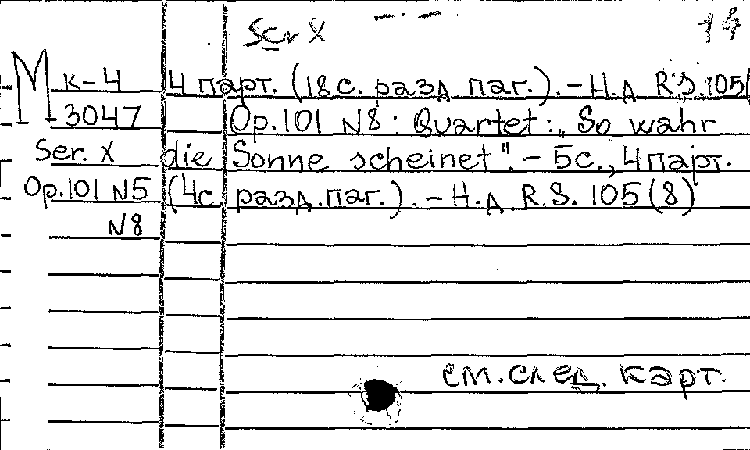 Ser X 14
М к-4 4 парт. (18с. разд. паг.). – Н.д. R.S. 105(
3047 Op.101 N8: Quartet: „So wahr
Ser. X die Sonne scheinet". – 5с., 4 парт.
Op.101 N5 (4с. разд. паг.). – Н.д. R.S. 105(8)
N8
см. след. карт.